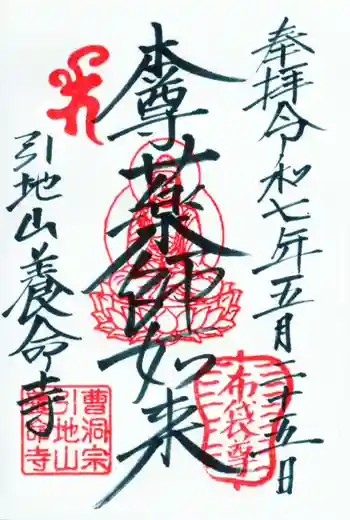 奉拝令和七年五月二十五日
本尊薬師如来
布袋尊
引地山養命寺
曹洞宗
引地山
養命寺